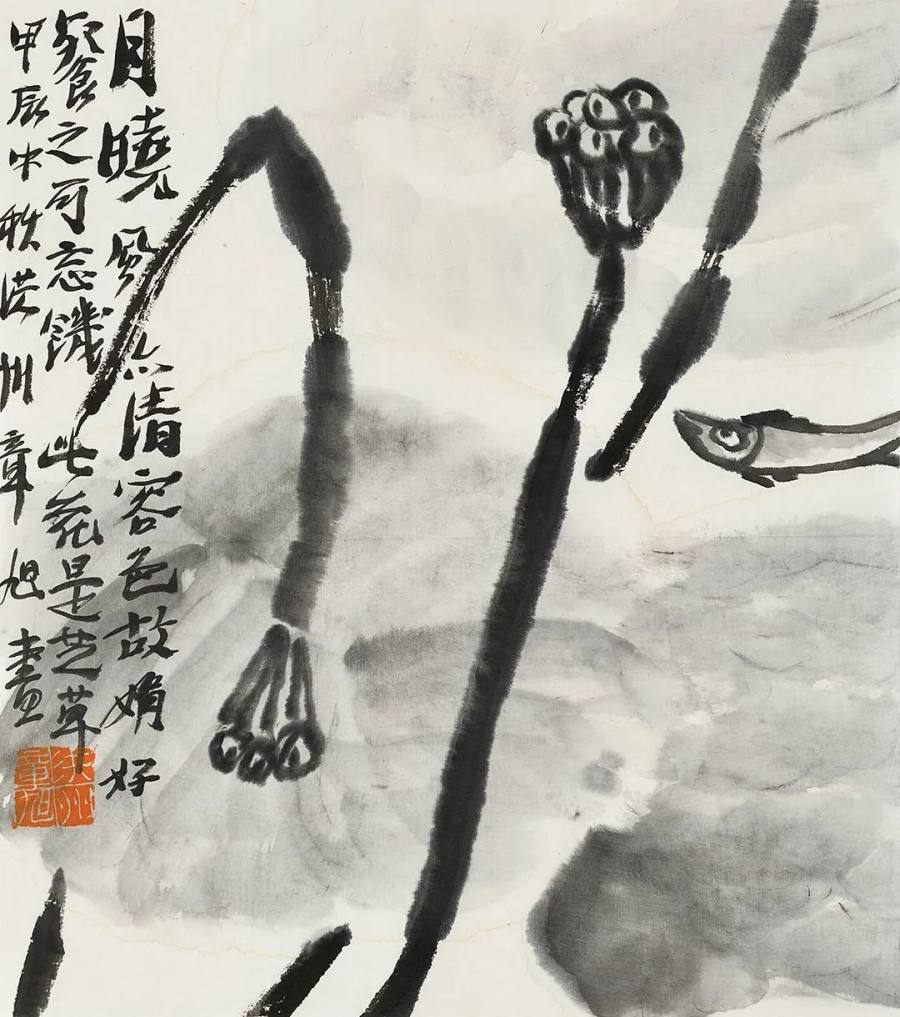 月曉風亦清容色故娟好
餐之可忘饑此花是芝草
甲辰中秋洪州章旭畫
洪州
章旭